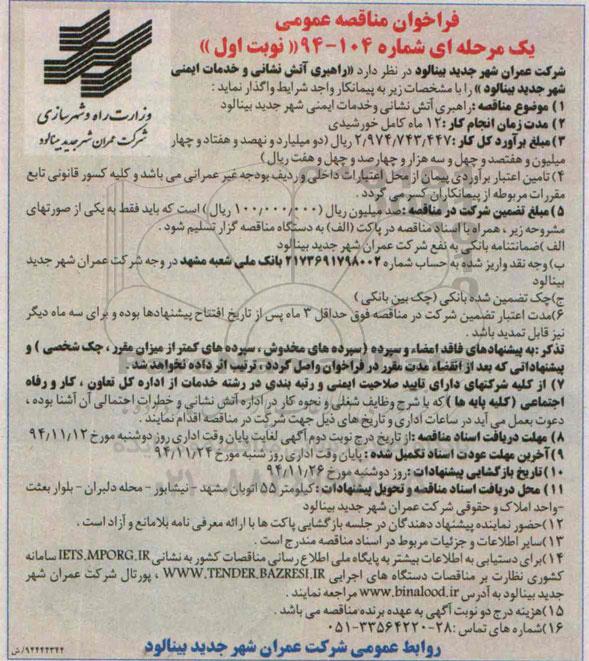 فراخوان مناقصه عمومی
یک مرحله ای شماره ۱۰۴-۹۴ « نوبت اول »
وزارت راه و شهرسازی
شرکت عمران شهر جدید بینالود
شرکت عمران شهر جدید بینالود در نظر دارد «راهبری آتش نشانی و خدمات ایمنی
شهر جدید بینالود » را با مشخصات زیر به پیمانکار واجد شرایط واگذار نماید :
۱) موضوع مناقصه :راهبری آتش نشانی وخدمات ایمنی شهر جدید بینالود
۲) مدت زمان انجام کار :۱۲ ماه کامل خورشیدی
۳)مبلغ برآورد کل کار :۲/۹۷۴/۷۴۳/۴۴۷ ریال (دو میلیارد و نهصد و هفتاد و چهار
میلیون و هفتصد و چهل و سه هزار و چهارصد و چهل و هفت ریال)
۴) تامین اعتبار برآوردی پیمان از محل اعتبارات داخلی و ردیف بودجه غیر عمرانی می باشد و کلیه کسور قانونی تابع
مقررات مربوطه از پیمانکاران کسر می گردد .
۵) مبلغ تضمین شرکت در مناقصه :صد میلیون ریال (۱۰۰/۰۰۰/۰۰۰ ریال ) است که باید فقط به یکی از صورتهای
مشروحه زیر ، همراه با اسناد مناقصه در پاکت (الف) به دستگاه مناقصه گزار تسلیم شود .
الف )ضمانتنامه بانکی به نفع شرکت عمران شهر جدید بینالود
ب) وجه نقد واریز شده به حساب شماره ۲۱۷۳۶۹۱۷۹۸۰۰۲ بانک ملی شعبه مشهد در وجه شرکت عمران شهر جدید
بینالود
ج)چک تضمین شده بانکی (چک بین بانکی )
۶)مدت اعتبار تضمین شرکت در مناقصه فوق حداقل ۳ ماه پس از تاریخ افتتاح پیشنهادها بوده و برای سه ماه دیگر
نیز قابل تمدید باشد .
تذکر : به پیشنهادهای فاقد امضاء و سپرده (سپرده های مخدوش ، سپرده های کمتر از میزان مقرر ، چک شخصی ) و
پیشنهاداتی که بعد از انقضاء مدت مقرر در فراخوان واصل گردد ، ترتیب اثر داده نخواهد شد .
۷) از کلیه شرکتهای دارای تایید صلاحیت ایمنی و رتبه بندی در رشته خدمات از اداره کل تعاون ، کار و رفاه
اجتماعی (کلیه پایه ها ) که با شرح وظایف شغلی و نحوه کار در اداره آتش نشانی و خطرات احتمالی آن آشنا بوده ،
دعوت بعمل می آید در ساعات اداری و تاریخ های ذیل جهت شرکت در مناقصه اقدام نمایند .
۸) مهلت دریافت اسناد مناقصه :از تاریخ درج نوبت دوم آگهی لغایت پایان وقت اداری روز دوشنبه مورخ ۹۴/۱۱/۱۲
۹)آخرین مهلت عودت اسناد تکمیل شده : پایان وقت اداری روز شنبه مورخ ۹۴/۱۱/۲۴
۱۰) تاریخ بازگشایی پیشنهادات :روز دوشنبه مورخ ۹۴/۱۱/۲۶
۱۱) محل دریافت اسناد مناقصه و تحویل پیشنهادات : کیلومتر ۵۵ اتوبان مشهد - نیشابور - محله دلبران - بلوار بعثت
-واحد املاک و حقوقی شرکت عمران شهر جدید بینالود
۱۲)حضور نماینده پیشنهاد دهندگان در جلسه بازگشایی پاکت ها با ارائه معرفی نامه بلامانع و آزاد است .
۱۳)سایر اطلاعات و جزئیات مربوط در اسناد مناقصه مندرج است .
۱۴)برای دستیابی به اطلاعات بیشتر به پایگاه ملی اطلاع رسانی مناقصات کشور به نشانی IETS.MPORG.IR سامانه
کشوری نظارت بر مناقصات دستگاه های اجرایی WWW.TENDER.BAZRESI.IR ، پورتال شرکت عمران شهر
جدید بینالود به آدرس www.binalood.ir مراجعه نمایند .
۱۵)هزینه درج دو نوبت آگهی به عهده برنده مناقصه می باشد .
۱۶)شماره های تماس :۲۸-۰۵۱-۳۳۵۶۴۲۲۰
روابط عمومی شرکت عمران شهر جدید بینالود
۹۴۴۴۴۳۴۴/ش